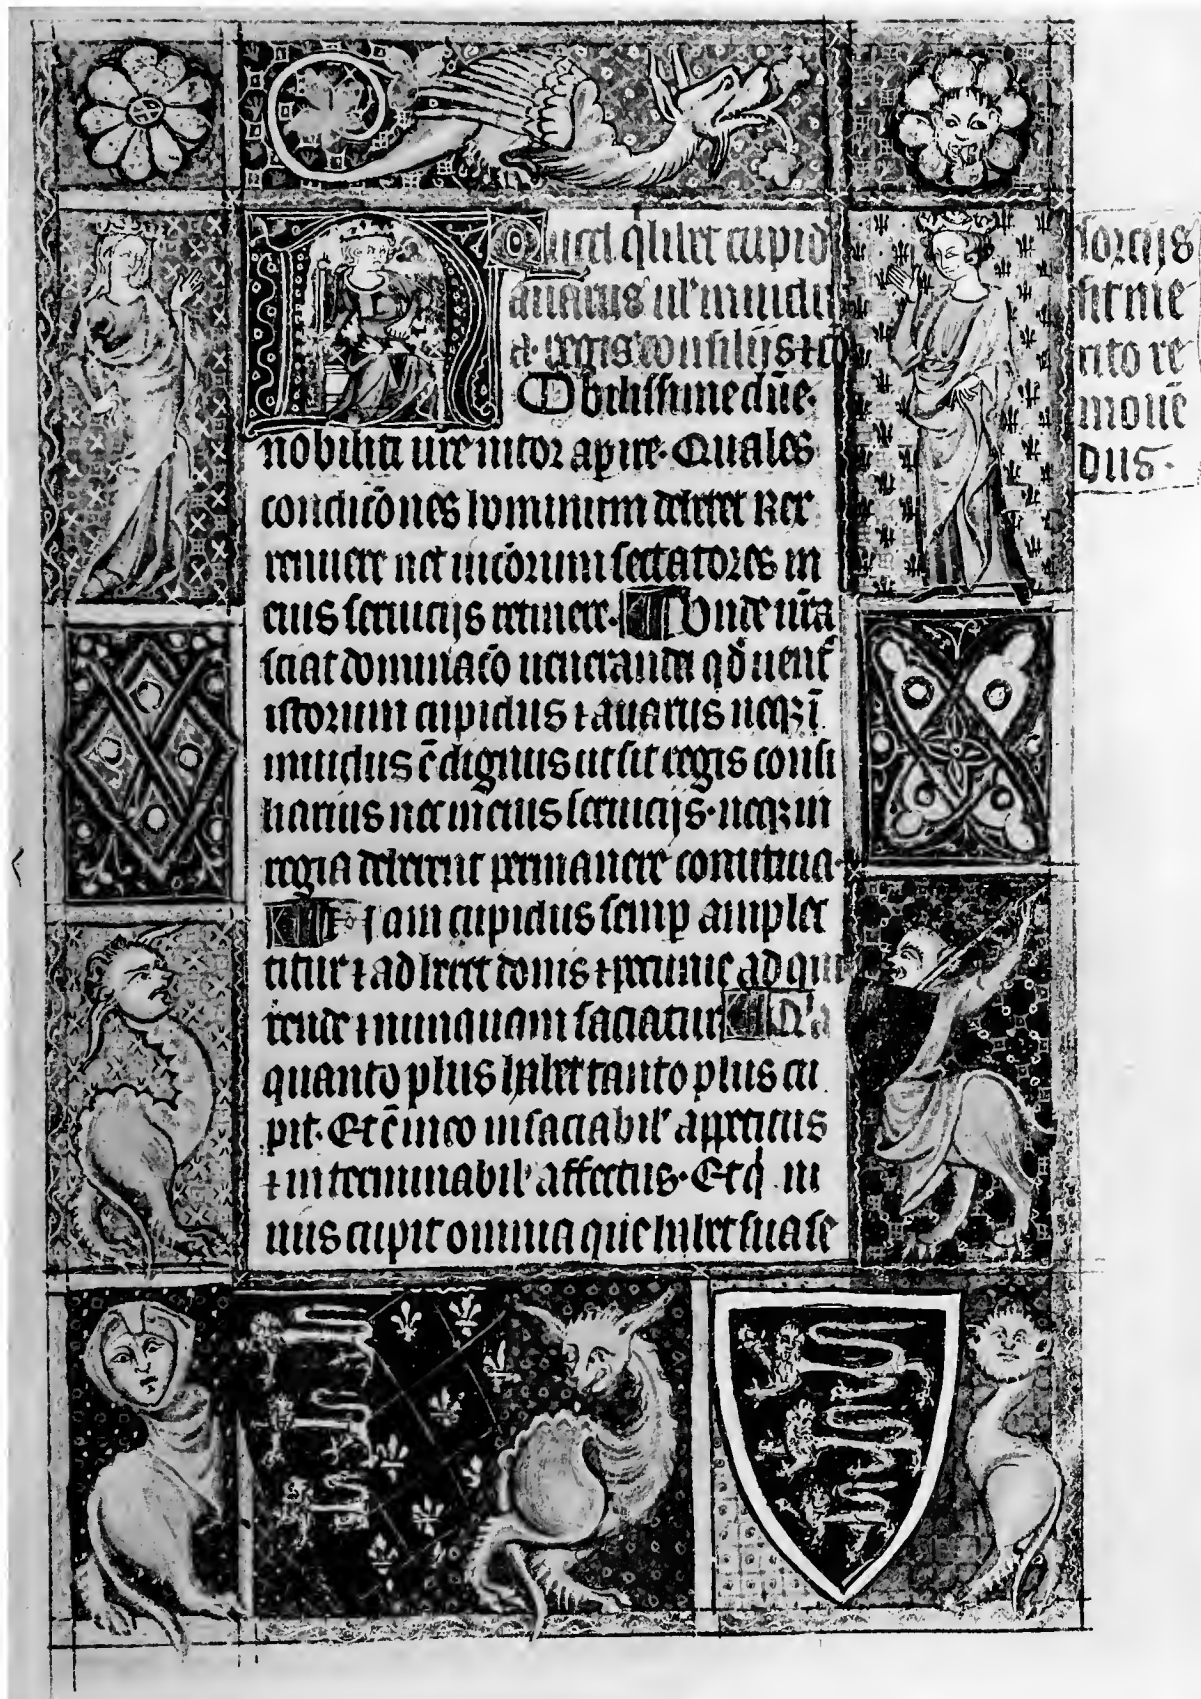 qlit̉ cupid
auarus ul' inuidus
a regis consilijs ⁊ cō
sorcijs
firme
cito re
mouē
dus·
Nobilissime dn̄e·
nobilitati ur̄e nitor apire· Quales
condicōnes hominum deberet Rex
renuere nec uicōrum sectatores in
eius seruicijs retinere· Unde ur̄a
sciat dominacō ueneranda qd̄
istorum cupidus ⁊ auarus neqz ī
uidus ē dignus ut sit regis consi
liarius nec in eius seruicijs· neqz in
regia deberent permanere comitiua·
Nam cupidus semp amplec
titur ⁊ adheret donis ⁊ pecunie adqui
rende ⁊ nunquam saciatur
quanto plus habet tanto plus cu
pit· Et ē in eo insaciabil' appetitus
⁊ interminabil' affectus· Et qi in
nus cupit omnia que habet sua se